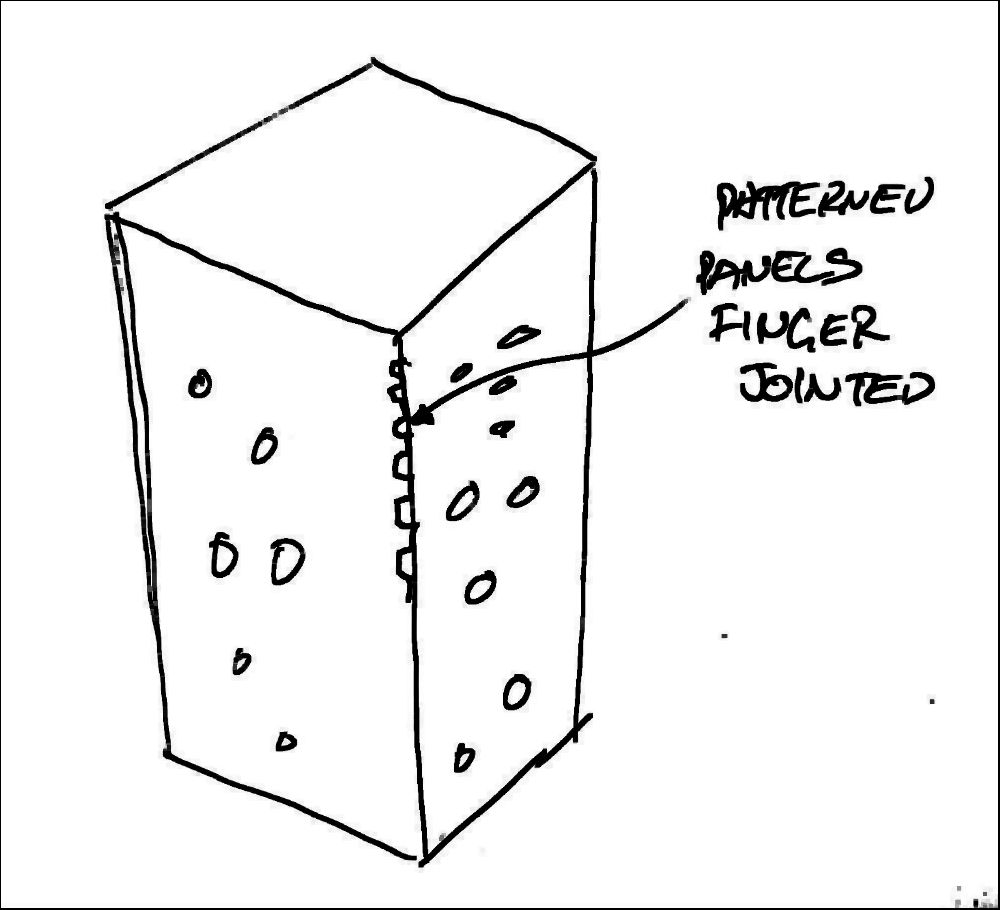 PATTERNED
PANELS
FINGER
JOINTED